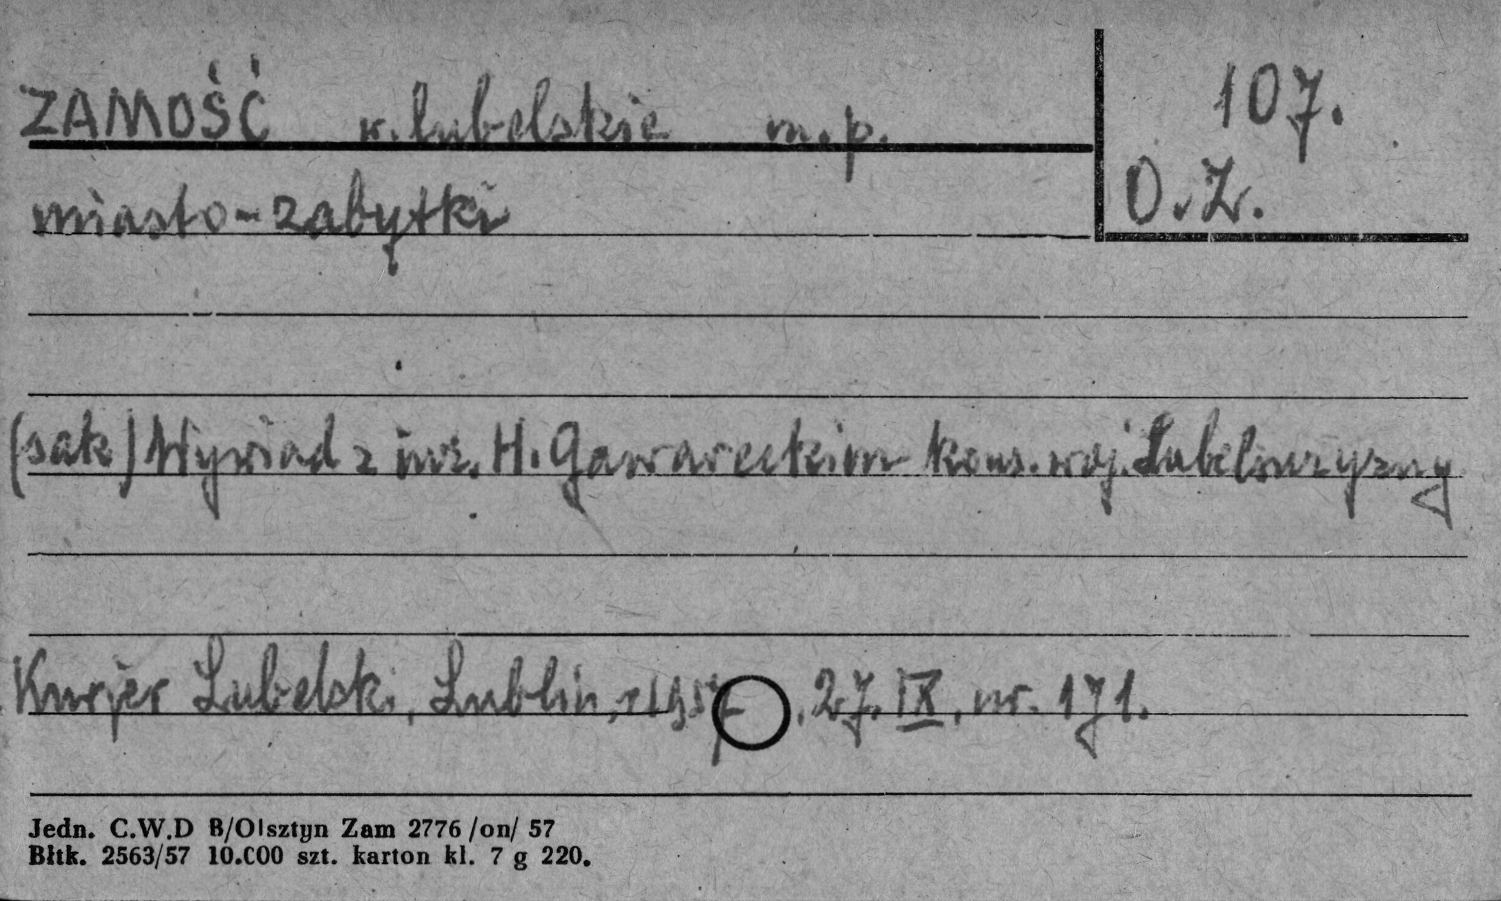 ZAMOŚĆ w. lubelskie m.p.
107.
O.Z.
miasto-zabytki
(sak) Wywiad z inż. H. Gawareckim kons. woj. Lubelszczyzny
Kurjer Lubelski, Lublin, r 1957, 27. IX, nr. 171.
Jedn. C.W.D B/Olsztyn Zam 2776 /on/ 57
Błtk. 2563/57 10.000 szt. karton kl. 7 g 220.